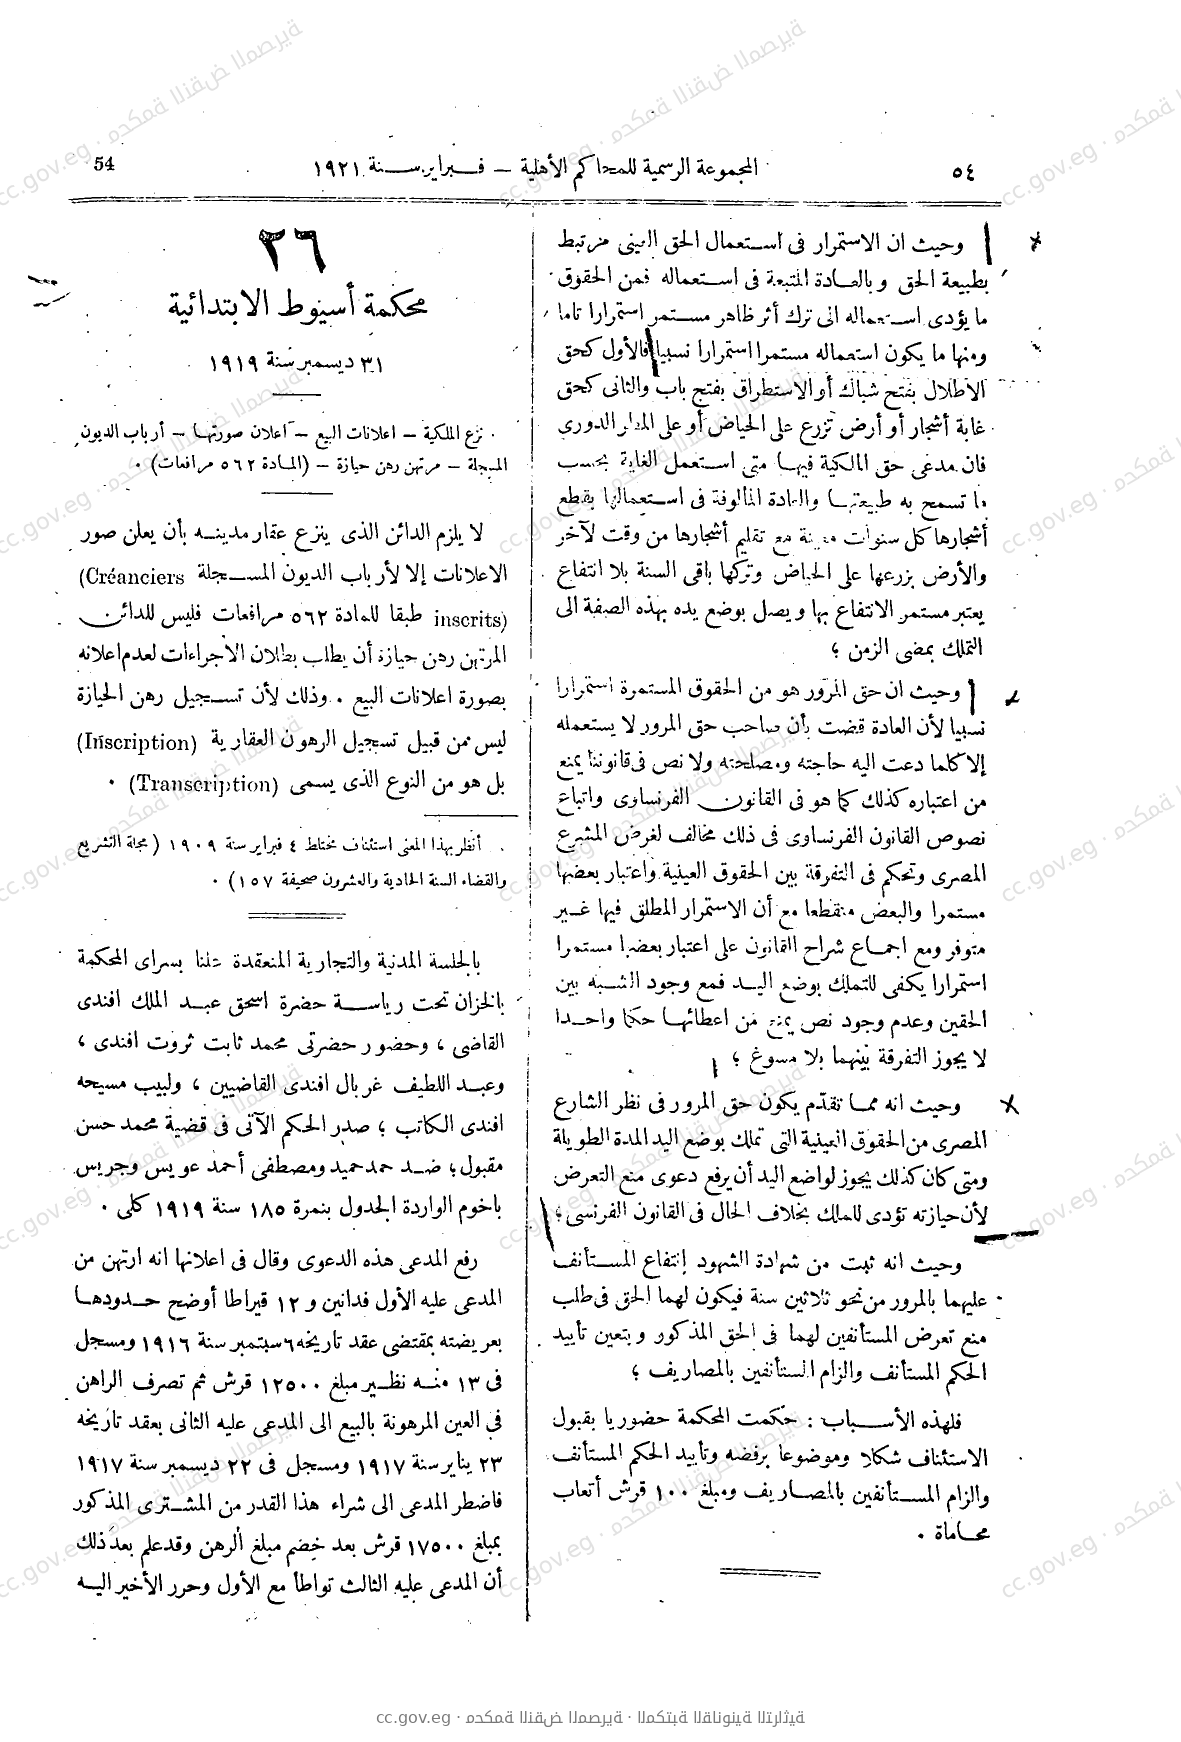 ٥٤
المجموعة الرسمية للمحاكم الأهلية – فبراير سنة ١٩٢١
54
وحيث ان الاستمرار فى استعمال الحق العينى مرتبط
بطبيعة الحق وبالعادة المتبعة فى استعماله فمن الحقوق
ما يؤدى استعماله الى ترك أثر ظاهر مستمر استمرارا تاما
ومنها ما يكون استعماله مستمرا استمرارا نسبيا فالأول كحق
الاطلال بفتح شباك أو الاستطراق بفتح باب والثانى كحق
غابة أشجار أو أرض تزرع على الحياض أو على المدار الدورى
فان مدعى حق المالكية فيها متى استعمل الغابة بحسب
ما تسمح به طبيعتها والعادة المألوفة فى استعمالها بقطع
أشجارها كل سنوات معينة مع تقليم أشجارها من وقت لآخر
والأرض بزرعها على الحياض وتركها باقى السنة بلا انتفاع
يعتبر مستمر الانتفاع بها ويصل بوضع يده بهذه الصفة الى
التملك بمضى الزمن ؛
وحيث ان حق المرور هو من الحقوق المستمرة استمرارا
نسبيا لأن العادة قضت بأن صاحب حق المرور لا يستعمله
إلا كلما دعت اليه حاجته ومصلحته ولا نص فى قانوننا يمنع
من اعتباره كذلك كما هو فى القانون الفرنساوى واتباع
نصوص القانون الفرنساوى فى ذلك مخالف لغرض المشرع
المصرى وتحكم فى التفرقة بين الحقوق العينية واعتبار بعضها
مستمرا والبعض متقطعا مع أن الاستمرار المطلق فيها غير
متوفر ومع اجماع شراح القانون على اعتبار بعضها مستمرا
استمرارا يكفى للتملك بوضع اليد فمع وجود الشبه بين
الحقين وعدم وجود نص يمنع من اعطائها حكما واحدا
لا يجوز التفرقة بينهما بلا مسوغ ؛
وحيث انه مما تقدّم يكون حق المرور فى نظر الشارع
المصرى من الحقوق العينية التى تملك بوضع اليد المدة الطويلة
ومتى كان كذلك يجوز لواضع اليد أن يرفع دعوى منع التعرض
لأن حيازته تؤدى للملك بخلاف الحال فى القانون الفرنسى ؛
وحيث انه ثبت من شهادة الشهود إنتفاع المستأنف
عليهما بالمرور من نحو ثلاثين سنة فيكون لهما الحق فى طلب
منع تعرض المستأنفين لهما فى الحق المذكور ويتعين تأييد
الحكم المستأنف والزام المستأنفين بالمصاريف ؛
فلهذه الأسباب : حكمت المحكمة حضوريا بقبول
الاستئناف شكلا وموضوعا برفضه وتأييد الحكم المستأنف
والزام المستأنفين بالمصاريف ومبلغ ١٠٠ قرش أتعاب
محاماة .
٢٦
محكمة أسيوط الابتدائية
٣١ ديسمبر سنة ١٩١٩
نزع الملكية – اعلانات البيع – اعلان صورتها – أرباب الديون
المسجلة – مرتهن رهن حيازة – (المادة ٥٦٢ مرافعات) .
لا يلزم الدائن الذى ينزع عقار مدينه بأن يعلن صور
الاعلانات إلا لأرباب الديون المسجلة (Créanciers
inscrits) طبقا للمادة ٥٦٢ مرافعات فليس للدائن
المرتهن رهن حيازة أن يطلب بطلان الاجراءات لعدم اعلانه
بصورة اعلانات البيع . وذلك لأن تسجيل رهن الحيازة
ليس من قبيل تسجيل الرهون العقارية (Inscription)
بل هو من النوع الذى يسمى (Transcription) .
أنظر بهذا المعنى استئناف مختلط ٤ فبراير سنة ١٩٠٩ (مجلة التشريع
والقضاء السنة الحادية والعشرون صحيفة ١٥٧) .
بالجلسة المدنية والتجارية المنعقدة علنا بسراى المحكمة
بالخزان تحت رياسة حضرة اسحق عبد الملك افندى
القاضى ، وحضور حضرتى محمد ثابت ثروت افندى ،
وعبد اللطيف غربال افندى القاضيين ، ولبيب مسيحه
افندى الكاتب ؛ صدر الحكم الآتى فى قضية محمد حسن
مقبول ؛ ضد حمد حميد ومصطفى أحمد عويس وجريس
باخوم الواردة الجدول بنمرة ١٨٥ سنة ١٩١٩ كلى .
رفع المدعى هذه الدعوى وقال فى اعلانها انه ارتهن من
المدعى عليه الأول فدانين و ١٢ قيراطا أوضح حدودها
بعريضته بمقتضى عقد تاريخه ٦ سبتمبر سنة ١٩١٦ ومسجل
فى ١٣ منه نظير مبلغ ١٢٥٠٠ قرش ثم تصرف الراهن
فى العين المرهونة بالبيع الى المدعى عليه الثانى بعقد تاريخه
٢٣ يناير سنة ١٩١٧ ومسجل فى ٢٢ ديسمبر سنة ١٩١٧
فاضطر المدعى الى شراء هذا القدر من المشترى المذكور
بمبلغ ١٧٥٠٠ قرش بعد خصم مبلغ الرهن وقد علم بعد ذلك
أن المدعى عليه الثالث تواطأ مع الأول وحرر الأخير اليه
cc.gov.eg · محكمة النقض المصرية · المكتبة القانونية التراثية